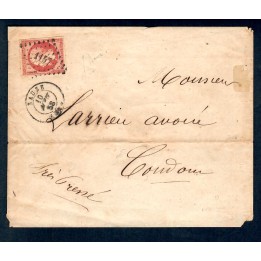 Monsieur
Larrieu avoué
Condom
très Pressé